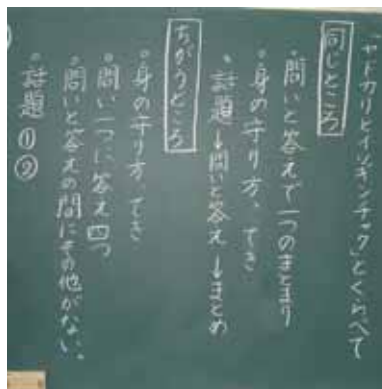 「ヤドカリとイソギンチャク」とくらべて
同じところ
・問いと答えで一つのまとまり
・身の守り方、てき
・話題→問いと答え→まとめ
ちがうところ
・身の守り方、てき
・問い一つに答え四つ
・問いと答えの間にその他がない。
・話題①②